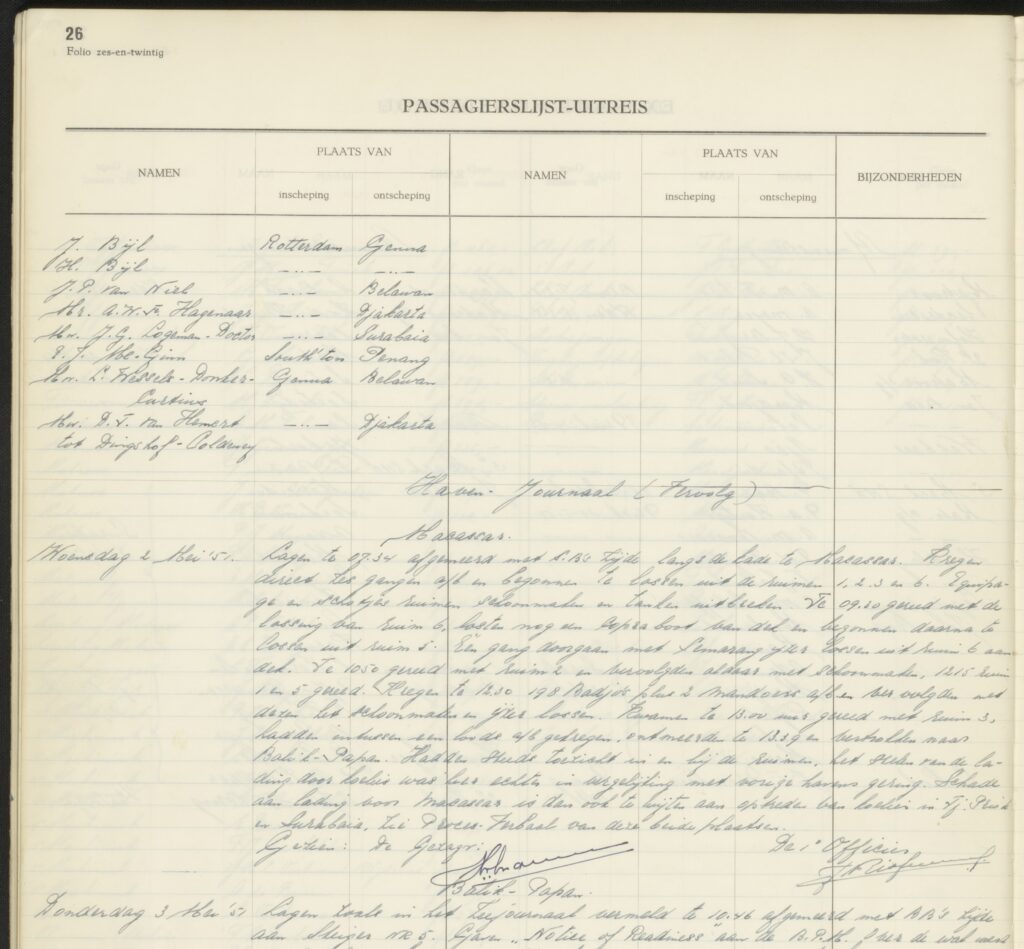 26
Folio zes-en-twintig
PASSAGIERSLIJST-UITREIS
NAMEN PLAATS VAN NAMEN PLAATS VAN BIJZONDERHEDEN
inscheping ontscheping inscheping ontscheping
J. Bijl Rotterdam Genua
H. Bijl -..- -..-
J.P. van Niel -..- Belawan
Mr. A.W.F. Hagenaar -..- Djakarta
Mw. J.G. Logeman-Doctor -..- Surabaia
Mc-Ginn South'ton Penang
Mw. L. Wessels-Donker- Genua Belawan
Curtius
Mw. D.F. van Hemert -..- Djakarta
tot Dingshof-
Haven-Journaal (Vervolg)
Macassar.
Woensdag 2 Mei '51. Lagen te 07.34 afgemeerd met S.B's zijde langs de kade te Macassar. Kregen
direct zes gangen a/b en begonnen te lossen uit de ruimen 1, 2, 3 en 6. Equipa-
ge en ruimen schoonmaken en tanken uitbreken. Te 09.20 gereed met de
lossing van ruim 6, losten nog een copra boot van dek en begonnen daarna te
lossen uit ruim 5. Eén gang doorgaan met Semarang ijzer lossen uit ruim 6 aan
dek. Te 1050 gereed met ruim 2 en vervolgden aldaar met schoonmaken, 1215 ruim
1 en 5 gereed. Kregen te 1230 198 Badjo's plus 2 mandoers a/b en vervolgden met
dezen het schoonmaken en ijzer lossen. Kwamen te 13.00 uur gereed met ruim 3,
hadden intussen een loods a/b gekregen, ontmeerden te 13.39 en vertrokken naar
Balik-Papan. Hadden steeds toezicht in en bij de ruimen, het stelen van de la-
ding door koelies was hier echter in vergelijking met vorige havens gering. Schade
aan lading voor Macassar is dan ook te wijten aan optreden van koelies in Tj. Priok
en Surabaia, zie Proces-Verbaal van deze beide plaatsen.
Gezien: De Gezagv: De 1e Officier
Balik-Papan.
Donderdag 3 Mei '51 Lagen zoals in het Zeejournaal vermeld te 10.46 afgemeerd met BB's zijde
aan Steiger NR 5. Gaven „Notice of Readiness" aan de B.P.M.